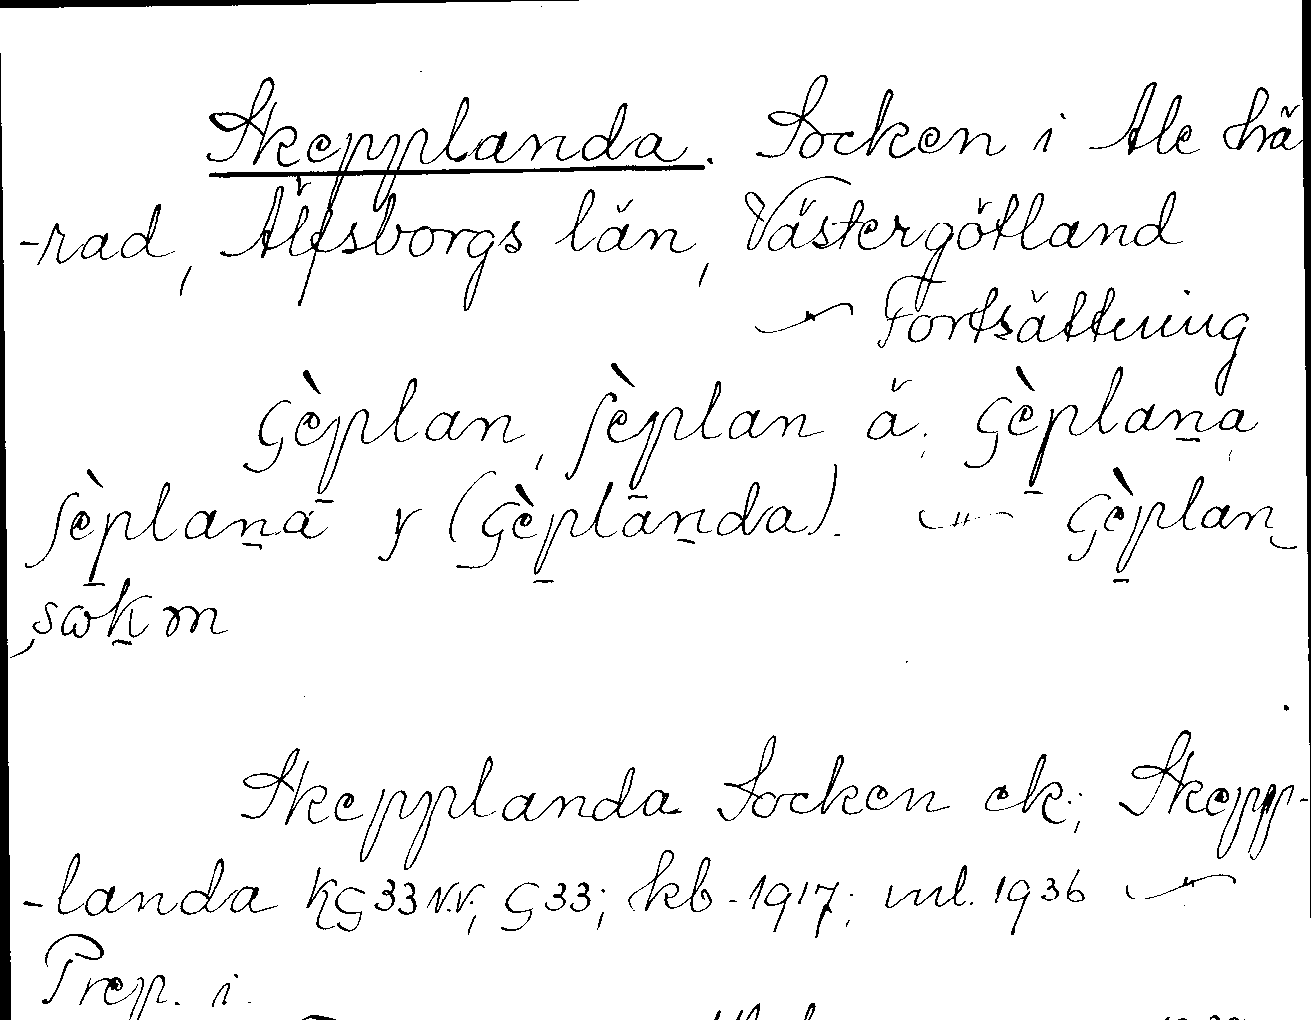 Skepplanda. Socken i Ale hä
-rad, Älfsborgs län, Västergötland
Fortsättning
Gèplan, ſèplan ä, Gèplaṉa,
ſèplaṉa y (Gèplanda). — " — Gèplan
sωkm
Skepplanda Socken ek; Skepp-
-landa KG 33 N.V; G 33; kb - 1917; ml. 1936
Prep. i.